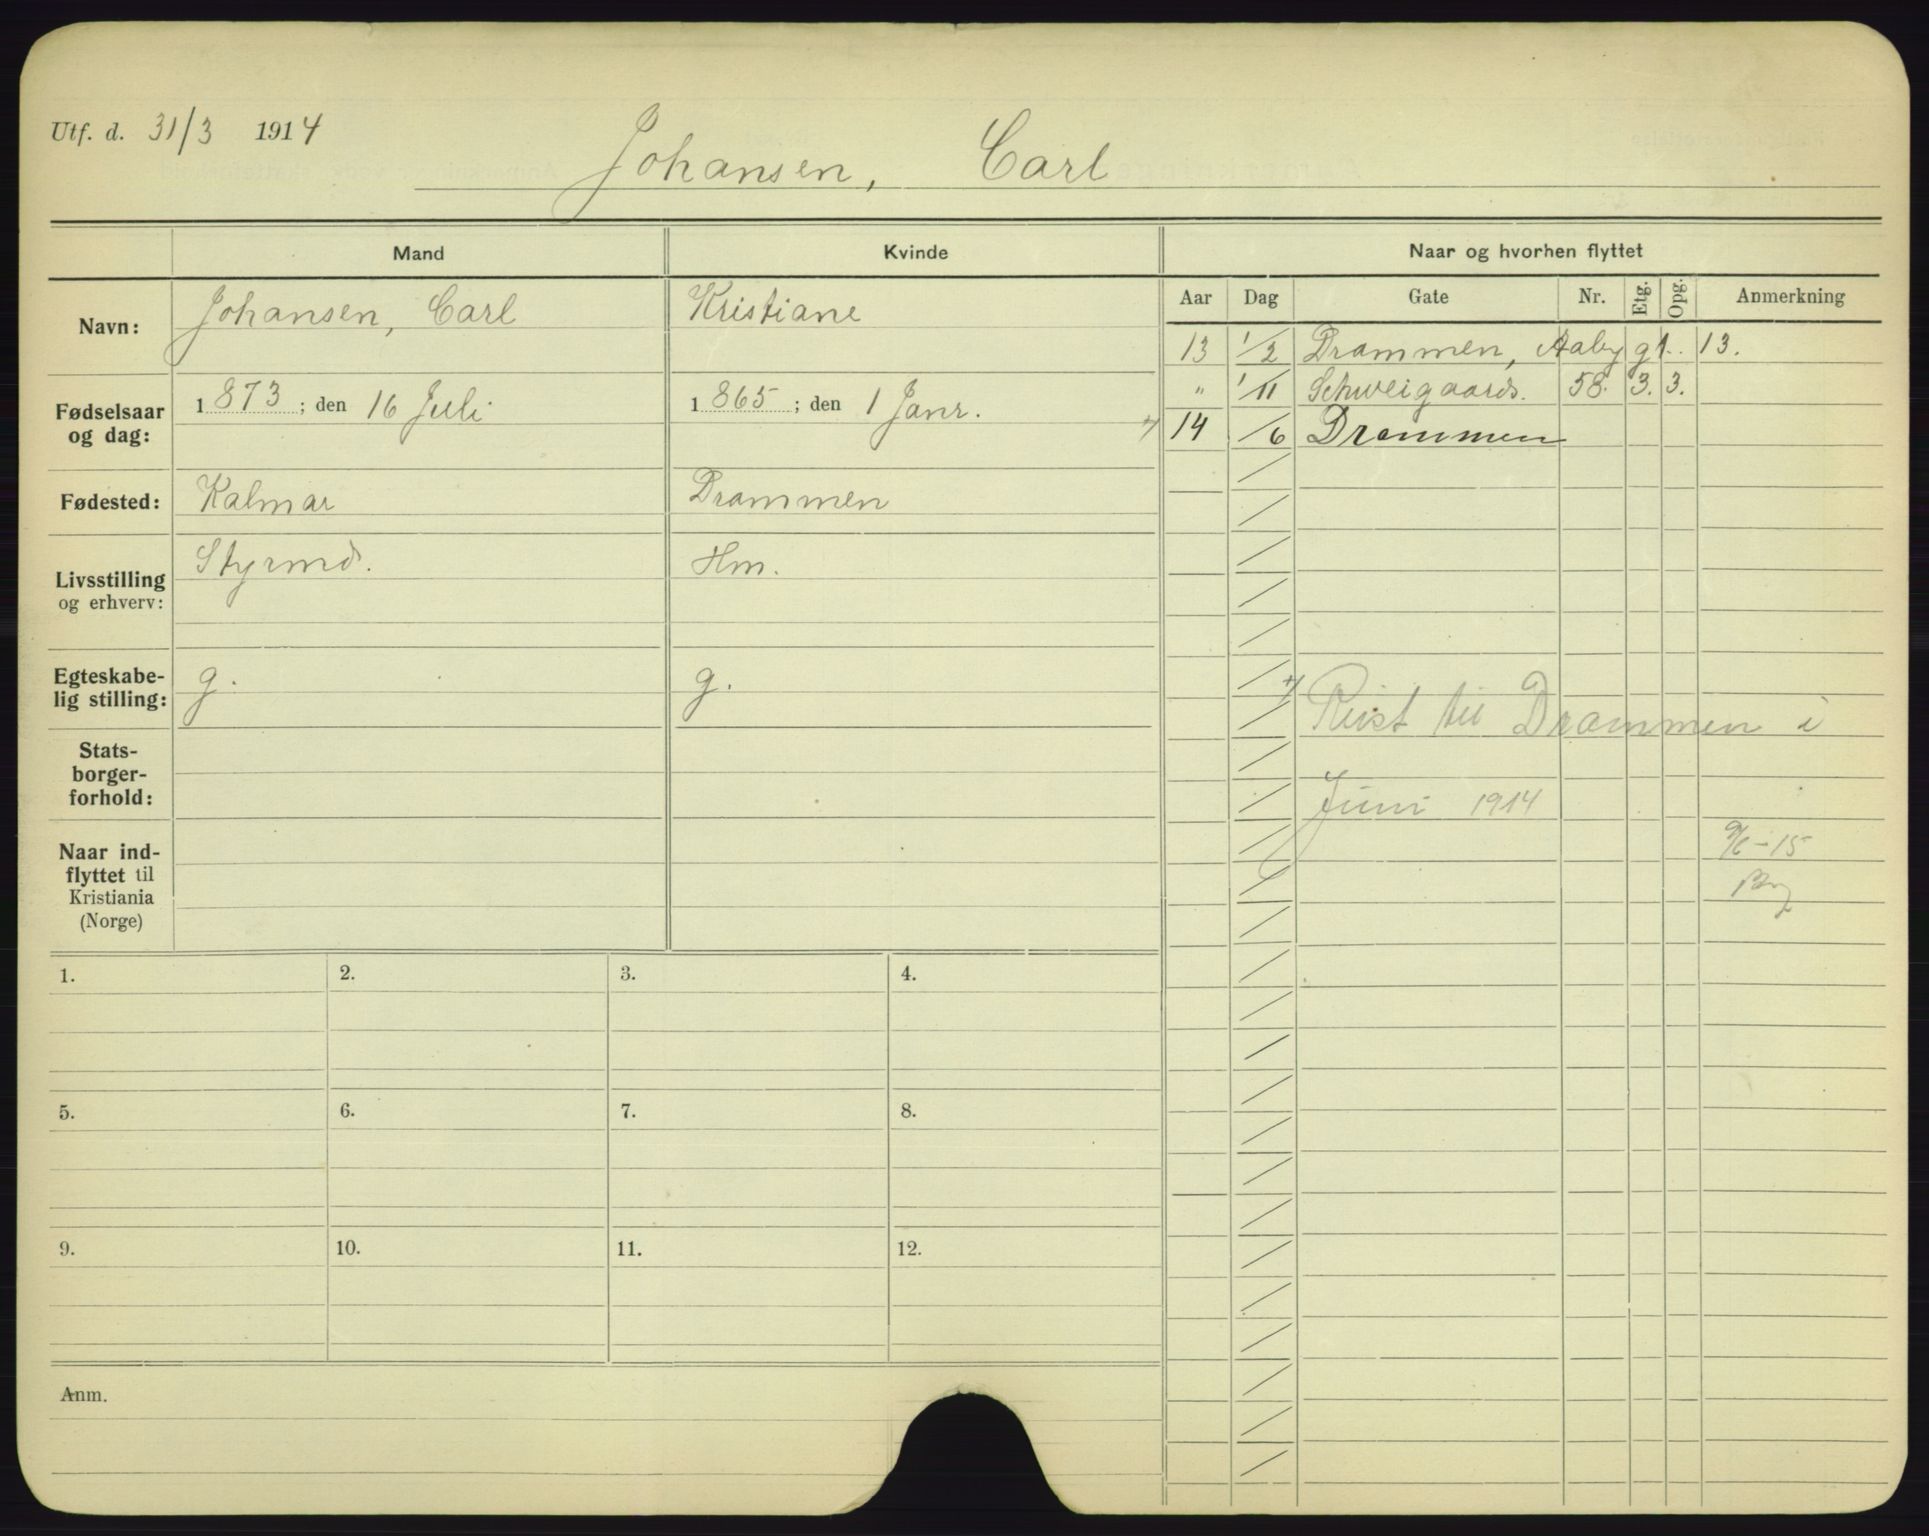 Utf. d. 31/3 1914
Johansen, Carl
Mand
Kvinde
Naar og hvorhen flyttet
Navn:
Johansen, Carl
Kristiane
Fødselsaar og dag:
1873; den 16 Juli
1865; den 1 Janr.
Fødested:
Kalmar
Drammen
Livsstilling og erhverv:
Styrmd.
Hm.
Egteskabe-
lig stilling:
g.
g.
Stats-
borger-
forhold:
Naar ind-
flyttet til
Kristiania
(Norge)
Aar Dag Gate Nr. Etg. Opg. Anmerkning
13 1/2 Drammen, Aaby g1.. 13.
" 1/11 Schweigaards. 58. 3. 3.
+) 14 /6 Drammen
+) Reist til Drammen i
Juni 1914
9/6-15
1. 2. 3. 4.
5. 6. 7. 8.
9. 10. 11. 12.
Anm.